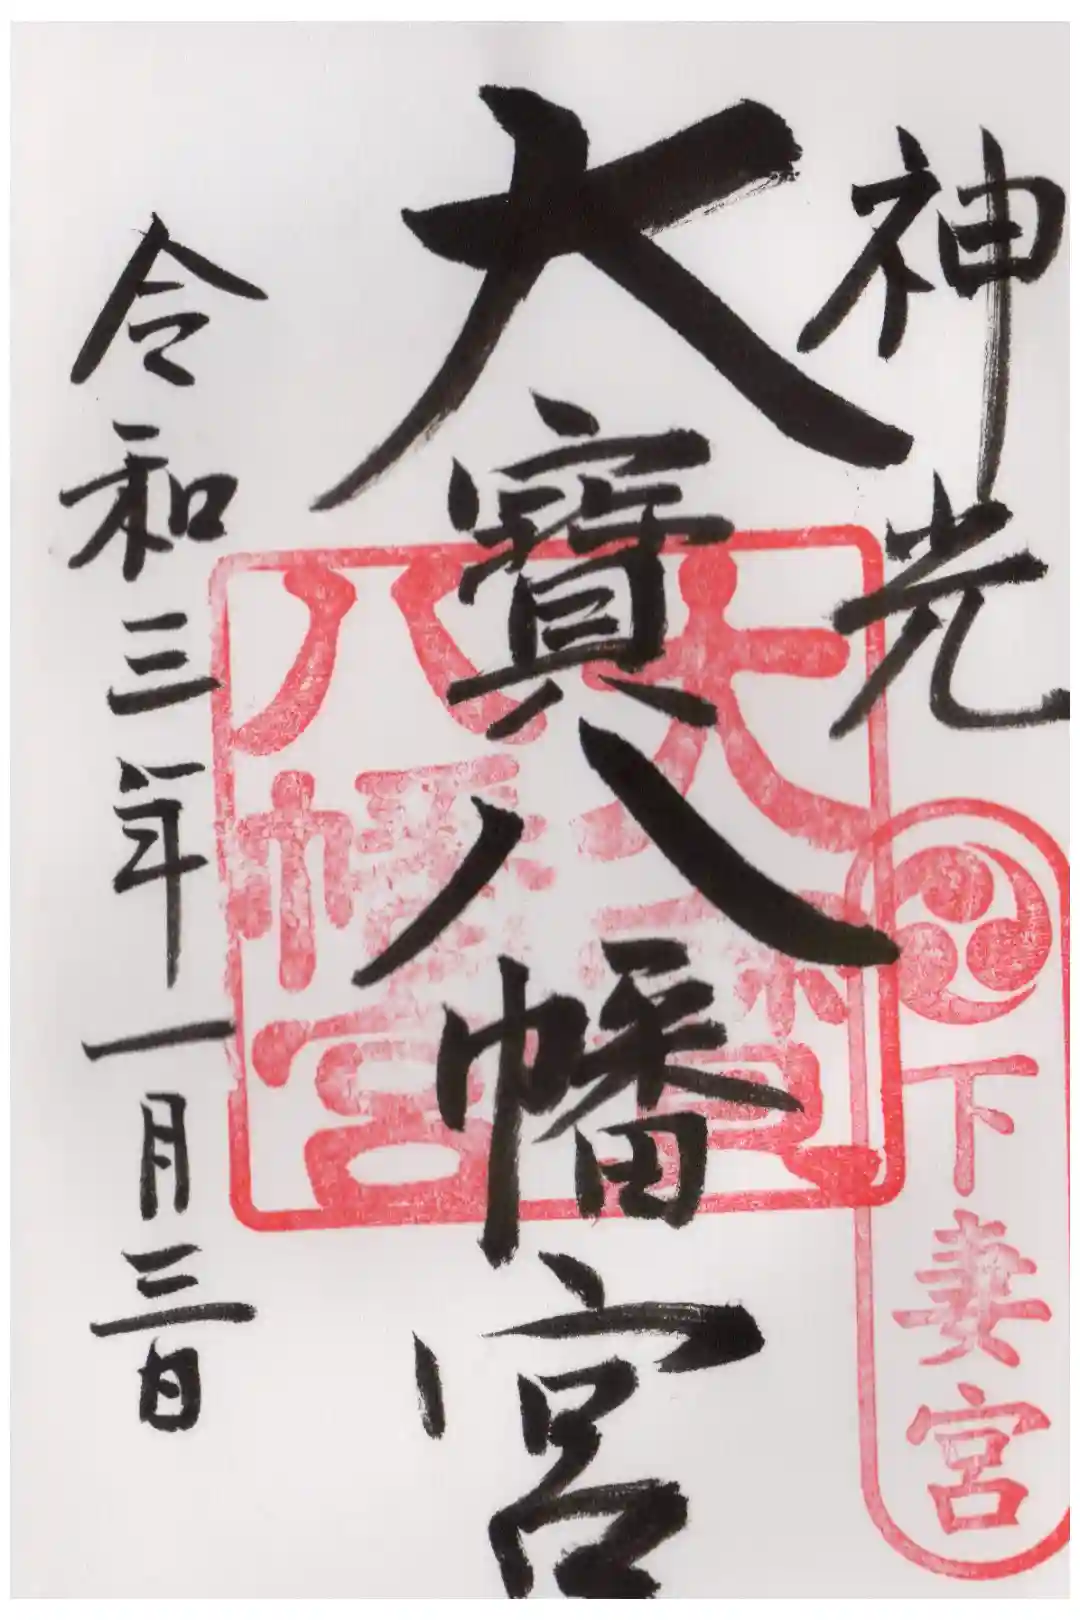 神光
下妻宮
大寶八幡宮
大寶八幡宮
令和三年一月三日